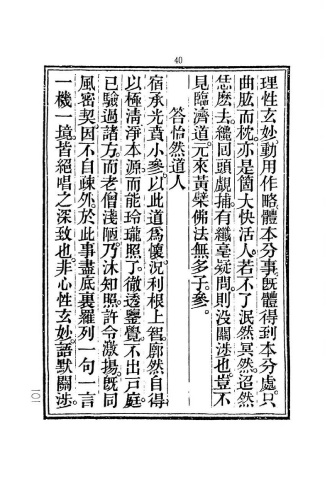 40
理性玄妙動用作略體本分事旣體得到本分處。只
曲肱而枕亦是箇大快活人。若不了泯然冥然迢然
恁麽去。纔回頭覷捕有纖毫疑問則没關涉也豈不
見臨濟道。元來黃檗佛法無多子參。
答怡然道人
宿承光賁小參。以此道爲懷況利根上智。廓然自得
以極淸淨本源而能玲瓏照了。徹透鑒覺。不出戸庭
已驗過諸方。而老僧淺陋。乃沐知照許令激揚。旣同
風密契因不自疎外於此事盡底裏羅列一句一言
一機一境。皆絕唱之深致也。非心性玄妙。語默關涉。
一〇一